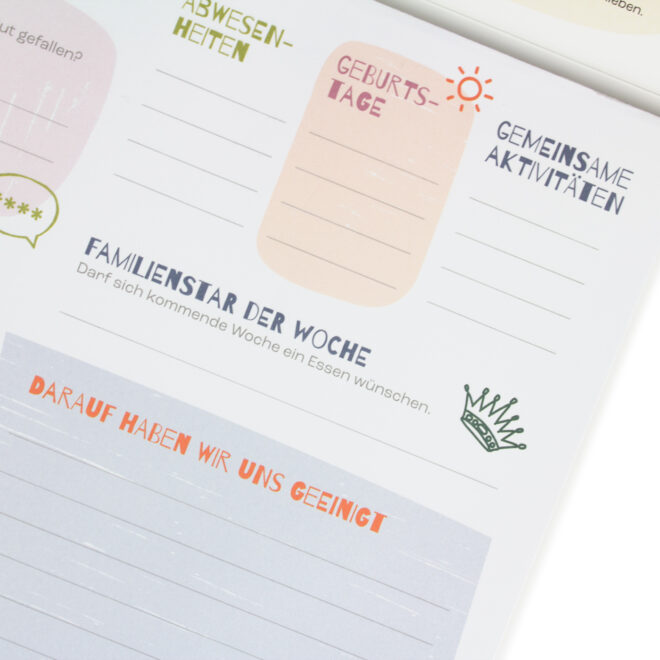 lieben.
ut gefallen?
ABWESEN-
HEITEN
GEBURTS-
TAGE
GEMEINSAME
AKTIVITÄTEN
****
FAMILIENSTAR DER WOCHE
Darf sich kommende Woche ein Essen wünschen.
DARAUF HABEN WIR UNS GEEINIGT